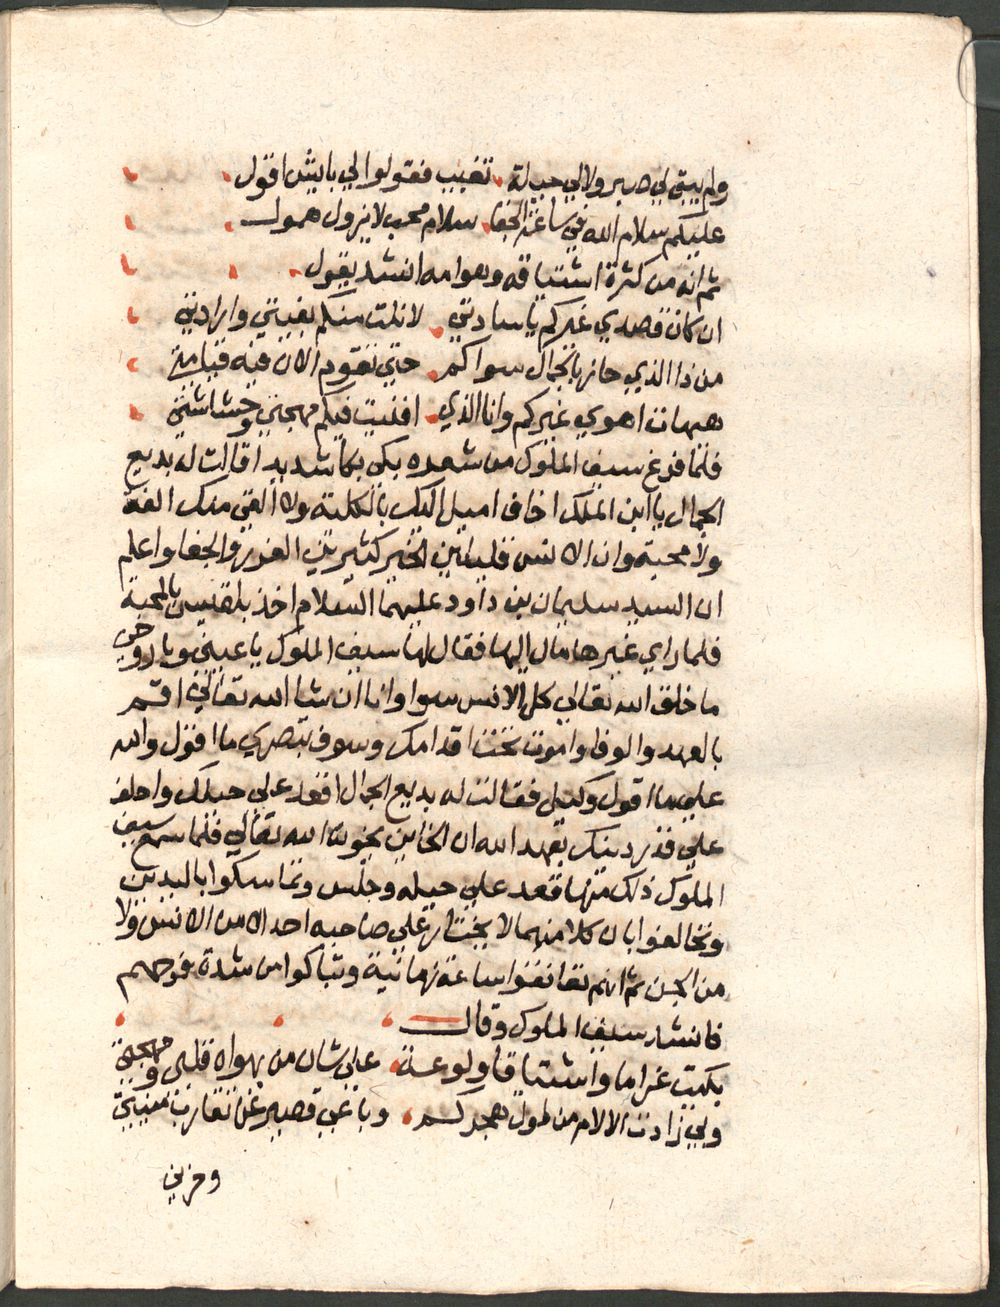 ولم يبقي لي صبر ولالي حيلة تغيب فقولوا لي بايش اقول
عليكم سلام الله في ساعة الجفا سلام محب لا يزول همول
ثم انه من كثرة اشتياقه وهوامه انشد يقول
ان كان قصدي غيركم يا سادتي لا نلت منكم بغيتي وارادتي
من ذا الذي حاز بالجمال سواكم حتي تقوم الان فيه قيامتي
هيهات اهوي غيركم وانا الذي افنيت فيكم مهجتي وحشاشتي
فلما فرغ سيف الملوك من شعره بكي بكا شديدا قالت له بديع
الجمال يا ابن الملك اخاف اميل اليك بالكلية ولا القي منك الفة
ولا محبة وان الانس قليلين الخير كثيرين الغدر والجفا واعلم
ان السيد سليمان بن داود عليهما السلام اخذ بلقيس بالمحبة
فلما راي غيرها مال اليها فقال لها سيف الملوك يا عيني ويا روحي
ما خلق الله تعالي كل الانس سوا وانا ان شا الله تعالي اقم
بالعهد والوفا واموت تحت اقدامك وسوف تبصري ما اقول والله
علي ما اقول وكيل فقالت له بديع الجمال اقعد علي حيلك واحلف
علي قدر دينك بعهد الله ان الخاين يخونه الله تعالي فلما سمع سيف
الملوك ذلك منها قعد علي حيله وجلس وتماسكوا باليدين
وتحالفوا بان كلا منهما لا يختار علي صاحبه احد الا من الانس ولا
من الجن ثم انهم تعانقوا ساعة زمانية وتباكوا من شدة فرحهم
فانشد سيف الملوك وقال
بكيت غراما واشتياقا ولوعة علي شان من يهواه قلبي ومهجتي
وبي زادت الالام من طول هجركم وباعي قصير عن تقارب منيتي
وحزني